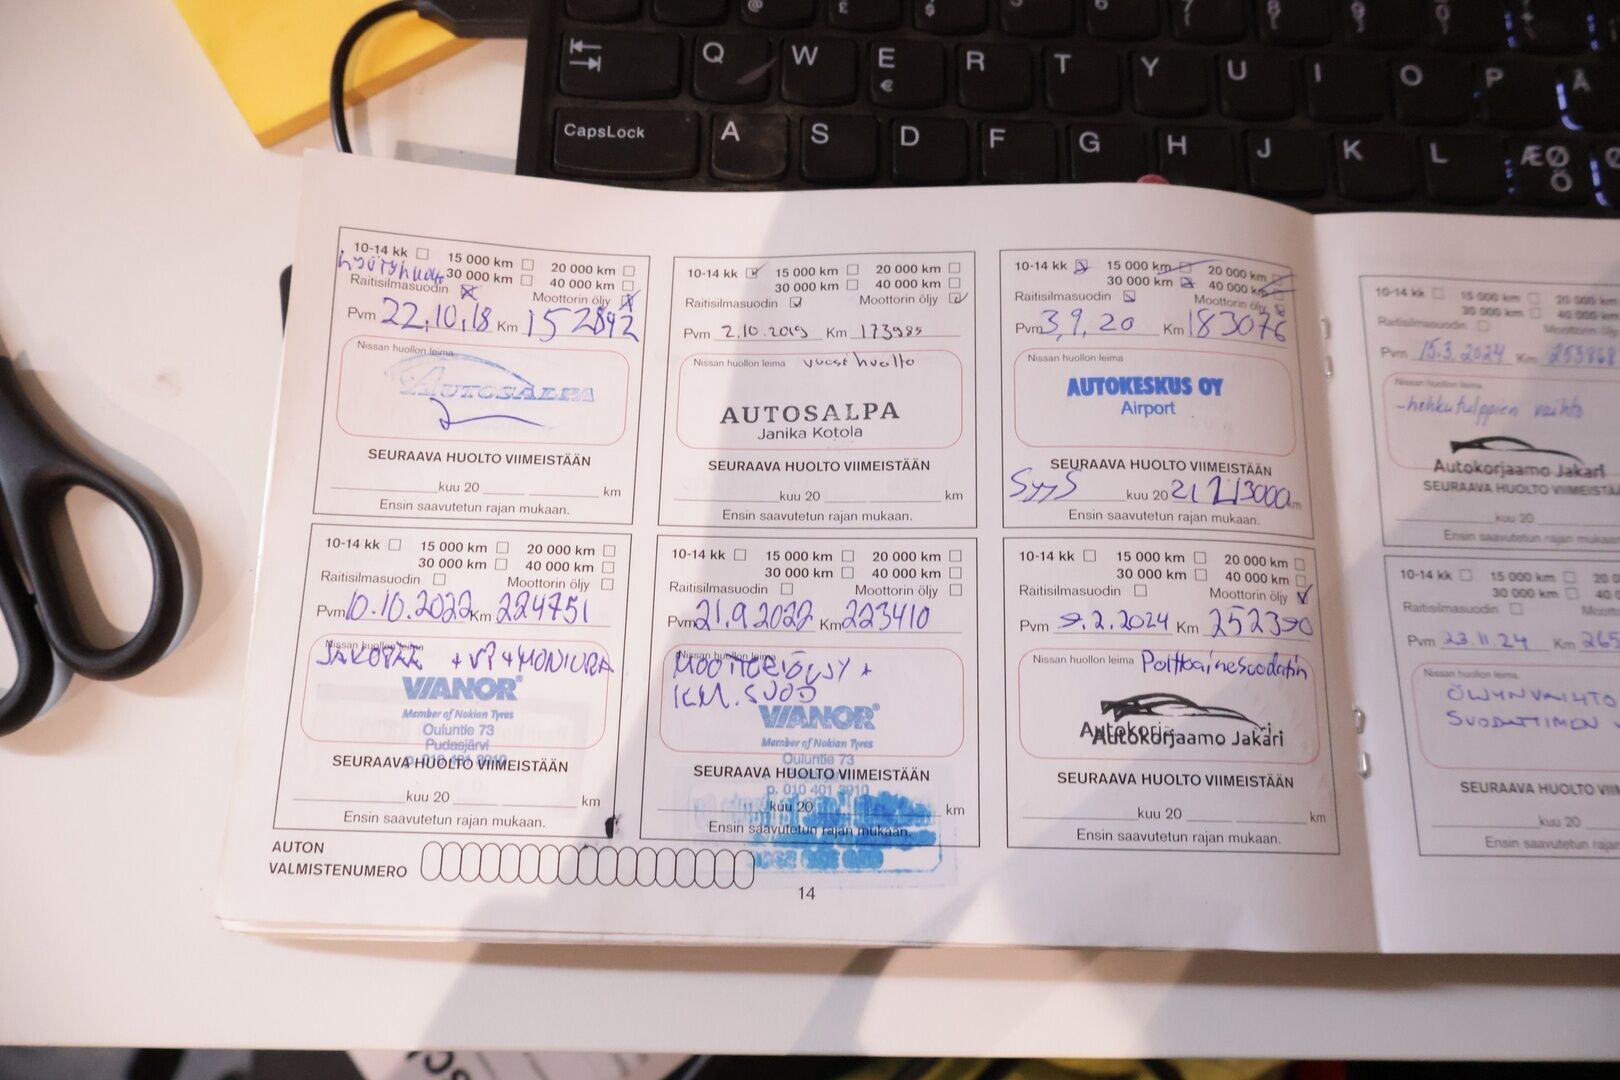 Q W E R T Y U I O P Å
€
CapsLock A S D F G H J K L ÆØ
Ö
10-14 kk 15 000 km 20 000 km
30 000 km 40 000 km
Raitisilmasuodin Moottorin öljy
Pvm 22.10.18 Km 152892
Nissan huollon leima
AUTOSALPA
SEURAAVA HUOLTO VIIMEISTÄÄN
kuu 20 km
Ensin saavutetun rajan mukaan.
10-14 kk 15 000 km 20 000 km
30 000 km 40 000 km
Raitisilmasuodin Moottorin öljy
Pvm 2.10.2019 Km 173985
Nissan huollon leima vuosihuolto
AUTOSALPA
Janika Kotola
SEURAAVA HUOLTO VIIMEISTÄÄN
kuu 20 km
Ensin saavutetun rajan mukaan.
10-14 kk 15 000 km 20 000 km
30 000 km 40 000 km
Raitisilmasuodin Moottorin öljy
Pvm 3,9,20 Km 183076
Nissan huollon leima
AUTOKESKUS OY
Airport
SEURAAVA HUOLTO VIIMEISTÄÄN
SYYS kuu 20 21 213000 km
Ensin saavutetun rajan mukaan.
10-14 kk 15 000 km 20 000
30 000 km
Raitisilmasuodin
Pvm 15.3.2024 Km 253868
Nissan huollon leima
-hehkutulppien vaihto
Autokorjaamo Jakari
SEURAAVA HUOLTO VIIMEISTÄÄN
kuu 20
Ensin saavutetun rajan mukaan.
10-14 kk 15 000 km 20 000 km
30 000 km 40 000 km
Raitisilmasuodin Moottorin öljy
Pvm 10.10.2022 Km 224751
Nissan huollon leima
+ VP +
VIANOR
Member of Nokian Tyres
Ouluntie 73
Pudasjärvi
p. 010 401 3910
SEURAAVA HUOLTO VIIMEISTÄÄN
kuu 20 km
Ensin saavutetun rajan mukaan.
10-14 kk 15 000 km 20 000 km
30 000 km 40 000 km
Raitisilmasuodin Moottorin öljy
Pvm 21.9.2022 Km 223410
Nissan huollon leima
MOOTTORIÖLJY +
ILM. SUOD
VIANOR
Member of Nokian Tyres
Ouluntie 73
SEURAAVA HUOLTO VIIMEISTÄÄN
p. 010 401 3910
kuu 20 km
Ensin saavutetun rajan mukaan.
10-14 kk 15 000 km 20 000 km
30 000 km 40 000 km
Raitisilmasuodin Moottorin öljy
Pvm 9.2.2024 Km 252390
Nissan huollon leima Polttoainesuodatin
Autokorjaamo Jakari
SEURAAVA HUOLTO VIIMEISTÄÄN
kuu 20 km
Ensin saavutetun rajan mukaan.
10-14 kk 15 000 km
30 000 km
Raitisilmasuodin
Pvm 23.11.24 Km 265
Nissan huollon leima
ÖLJYNVAIHTO
SUODATTIMEN
SEURAAVA HUOLTO
kuu 20
Ensin saavutetun rajan
AUTON
VALMISTENUMERO
14